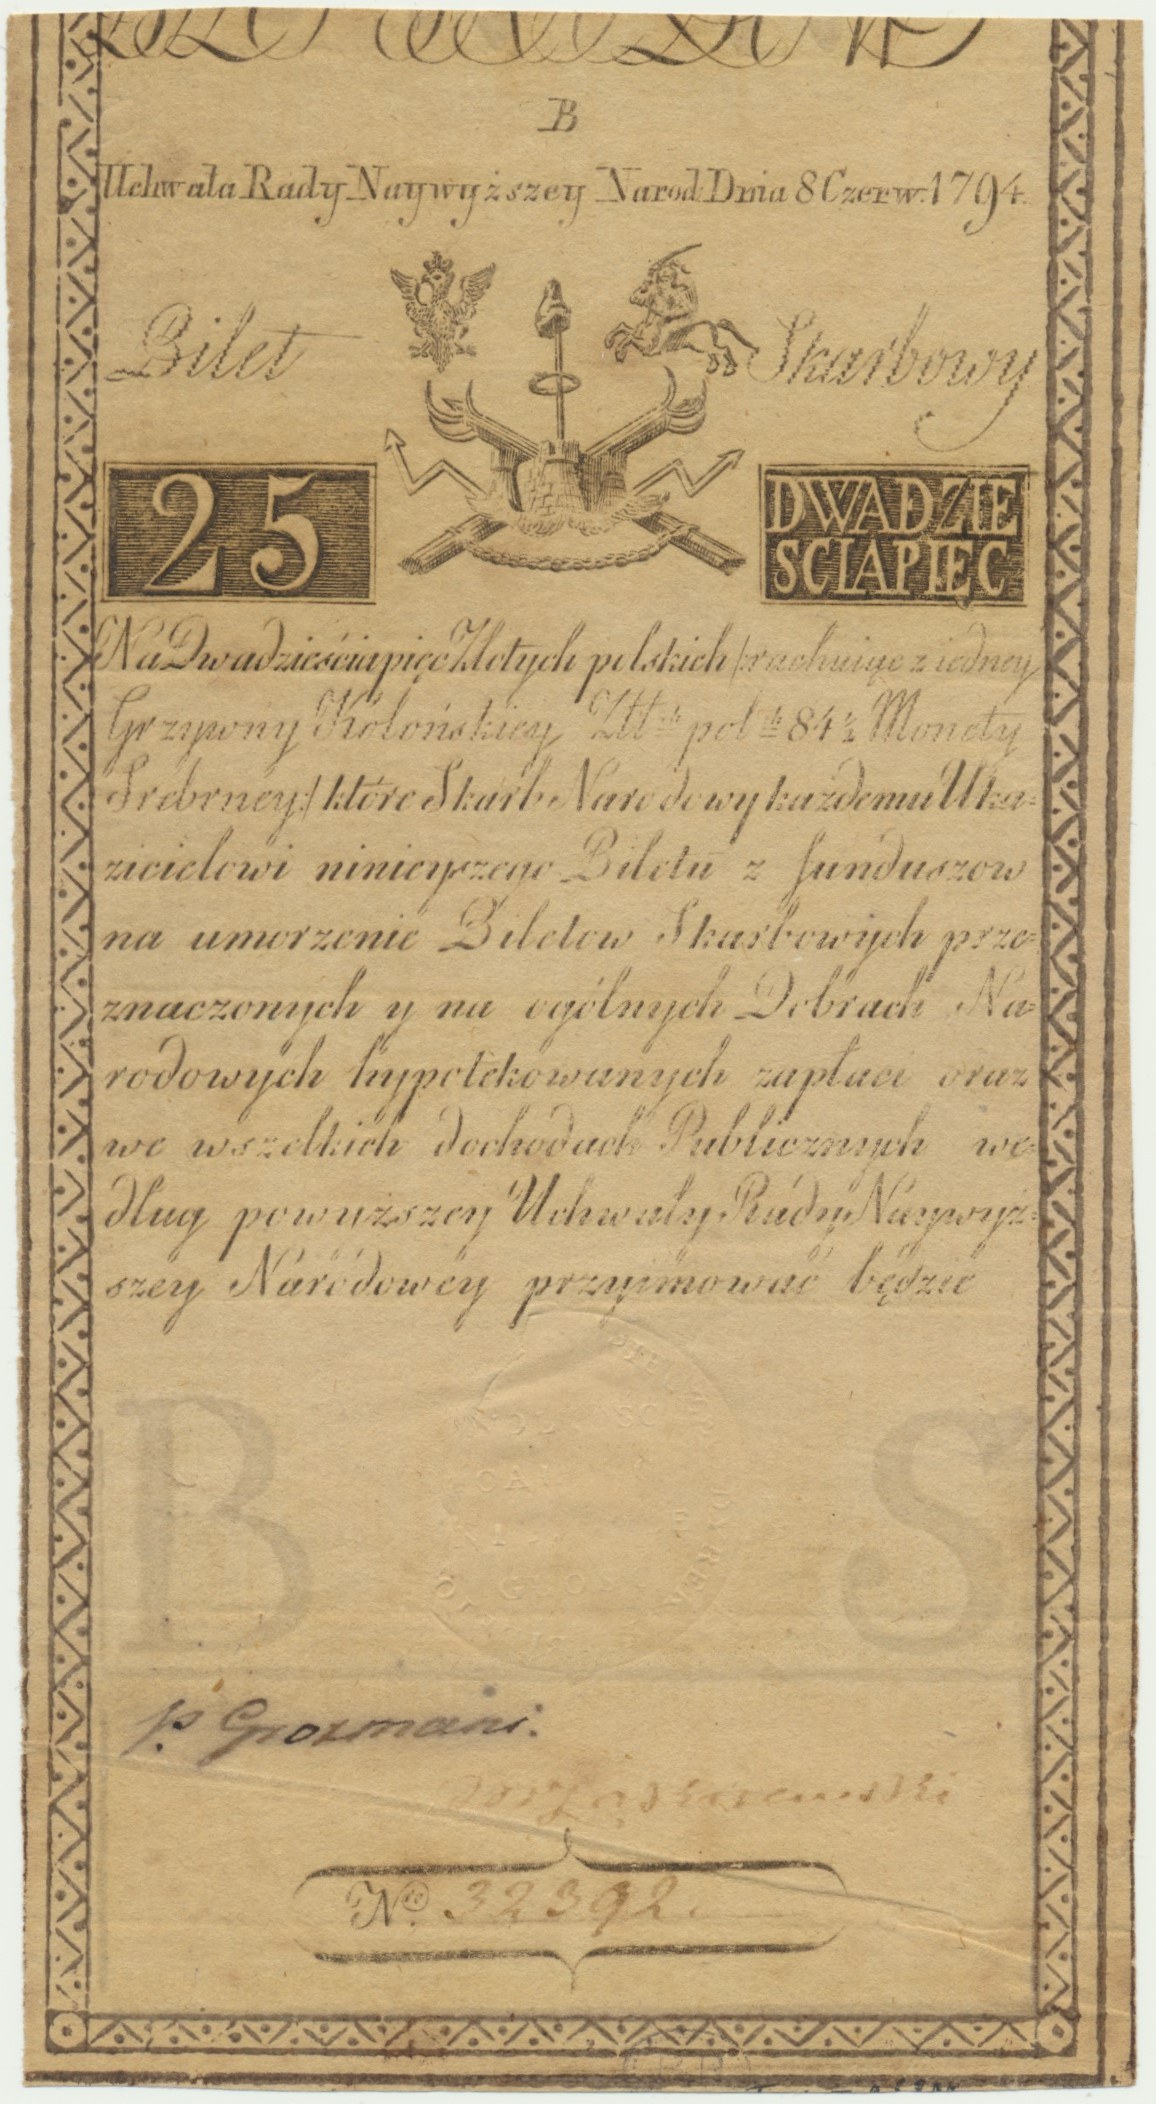 B
Uchwała Rady Naywyższey Narod: Dnia 8 Czerw: 1794.
Bilet Skarbowy
25
DWADZIE
SCIAPIĘC
Na Dwadzieściapięć Złotych polskich /:rachuiąc z iedney
Grzywny Kolońskiey Złł^ch pol^ch 84½ Monety
Srebrney:/ które Skarb Narodowy każdemu Uka=
zicielowi ninieyszego Biletu z funduszow
na umorzenie Biletow Skarbowych prze=
znaczonych y na ogólnych Dobrach Na=
rodowych hypotekowanych zapłaci oraz
we wszelkich dochodach Publicznych we=
dług powyższey Uchwały Rady Naywyż=
szey Narodowey przyimować będzie
B S
p. Grozmani.
N^ro. 32392.